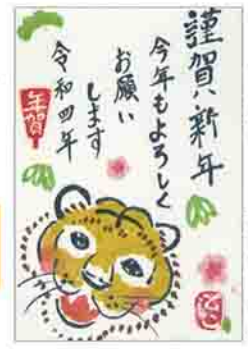 謹賀新年
今年もよろしく
お願い
します
令和四年
年賀